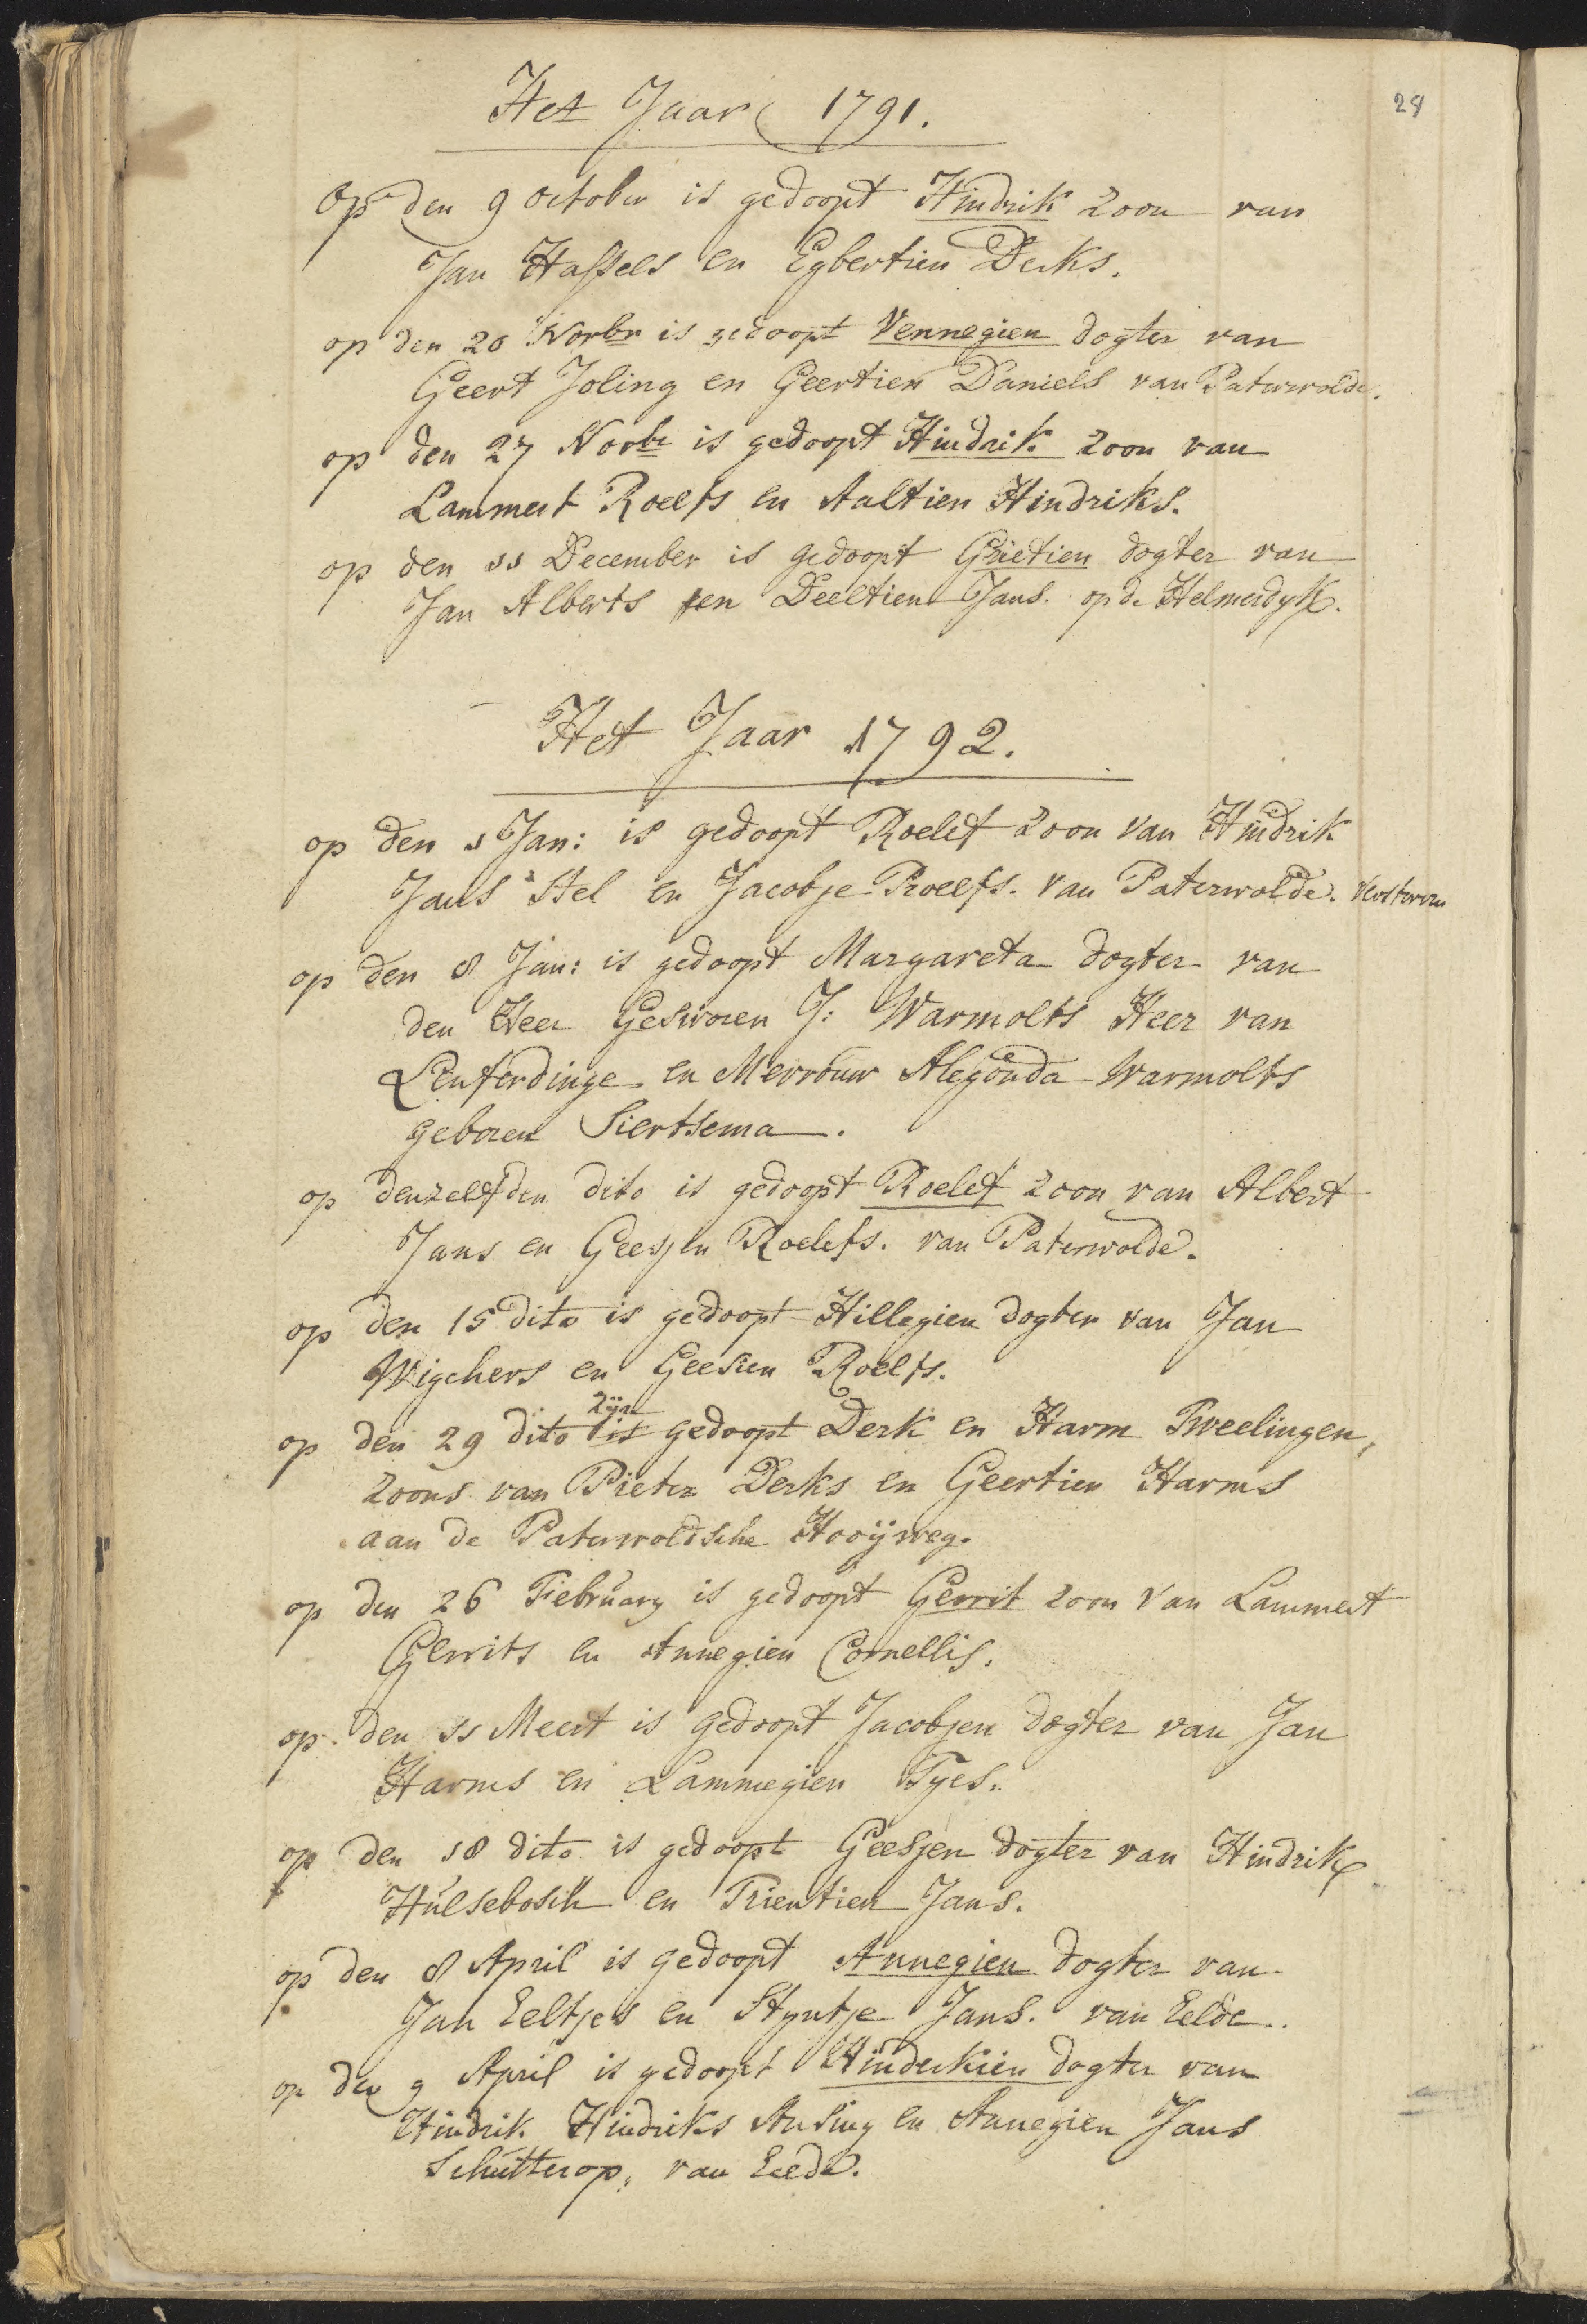 28
Het Jaar 1791.
Op den 9 October is gedoopt Hindrik zoon van
Jan Hassels en Egbertien Derks.
op den 20 Novbr is gedoopt Vennegien dogter van
Geert Joling en Geertien Daniels van Paterwolde.
op den 27 Novbr is gedoopt Hindrik zoon van
Lammert Roelfs en Aaltien Hindriks.
op den 11 December is gedoopt Grietien dogter van
Jan Alberts en Deeltien Jans. op de Helmerdyk.
Het Jaar 1792.
op den 1 Jan: is gedoopt Roelef zoon van Hindrik
Jans Stel en Jacobje Roelfs. van Paterwolde.
op den 8 Jan: is gedoopt Margareta dogter van
den Heer Gesworen J: Warmolts Heer van
Lemferdinge en Mevrouw Alegonda Warmolts
geboren Siertsema.
op denzelfden dito is gedoopt Roelef zoon van Albert
Jans en Geesjen Roelefs. van Paterwolde.
op den 15 dito is gedoopt Hillegien dogter van Jan
Wigchers en Geesien Roelfs.
op den 29 dito is zijn gedoopt Derk en Harm Tweelingen,
zoons van Pieter Derks en Geertien Harms
aan de Paterwoldsche Hooijweg.
op den 26 February is gedoopt Gerrit zoon van Lammert
Gerrits en Annegien Cornellis.
op den 11 Meert is gedoopt Jacobjen dogter van Jan
Harms en Lammegien Tyes.
op den 18 dito is gedoopt Geesjen dogter van Hindrik
Hulsebosch en Trientien Jans.
op den 8 April is gedoopt Annegien dogter van
Jan Eeltjes en Styntje Jans. van Eelde.
op den 9 April is gedoopt Hinderkien dogter van
Hindrik Hindriks Ansing en Annegien Jans
Schutterop, van Eelde.